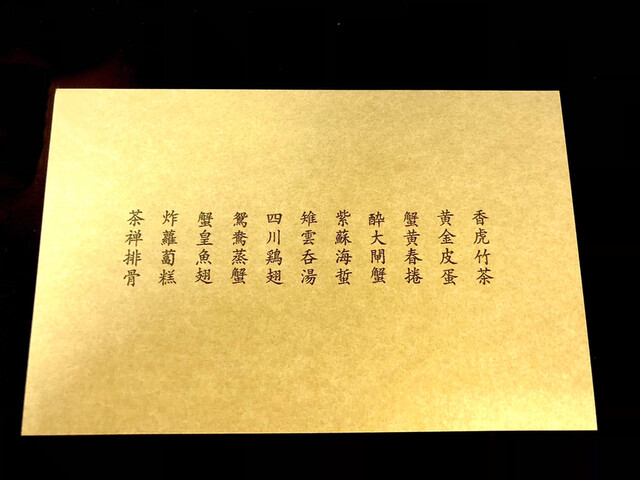 香虎竹茶
黄金皮蛋
蟹黄春捲
酔大閘蟹
紫蘇海蜇
雉雲呑湯
四川鶏翅
鴛鴦蒸蟹
蟹皇魚翅
炸蘿蔔糕
茶禅排骨